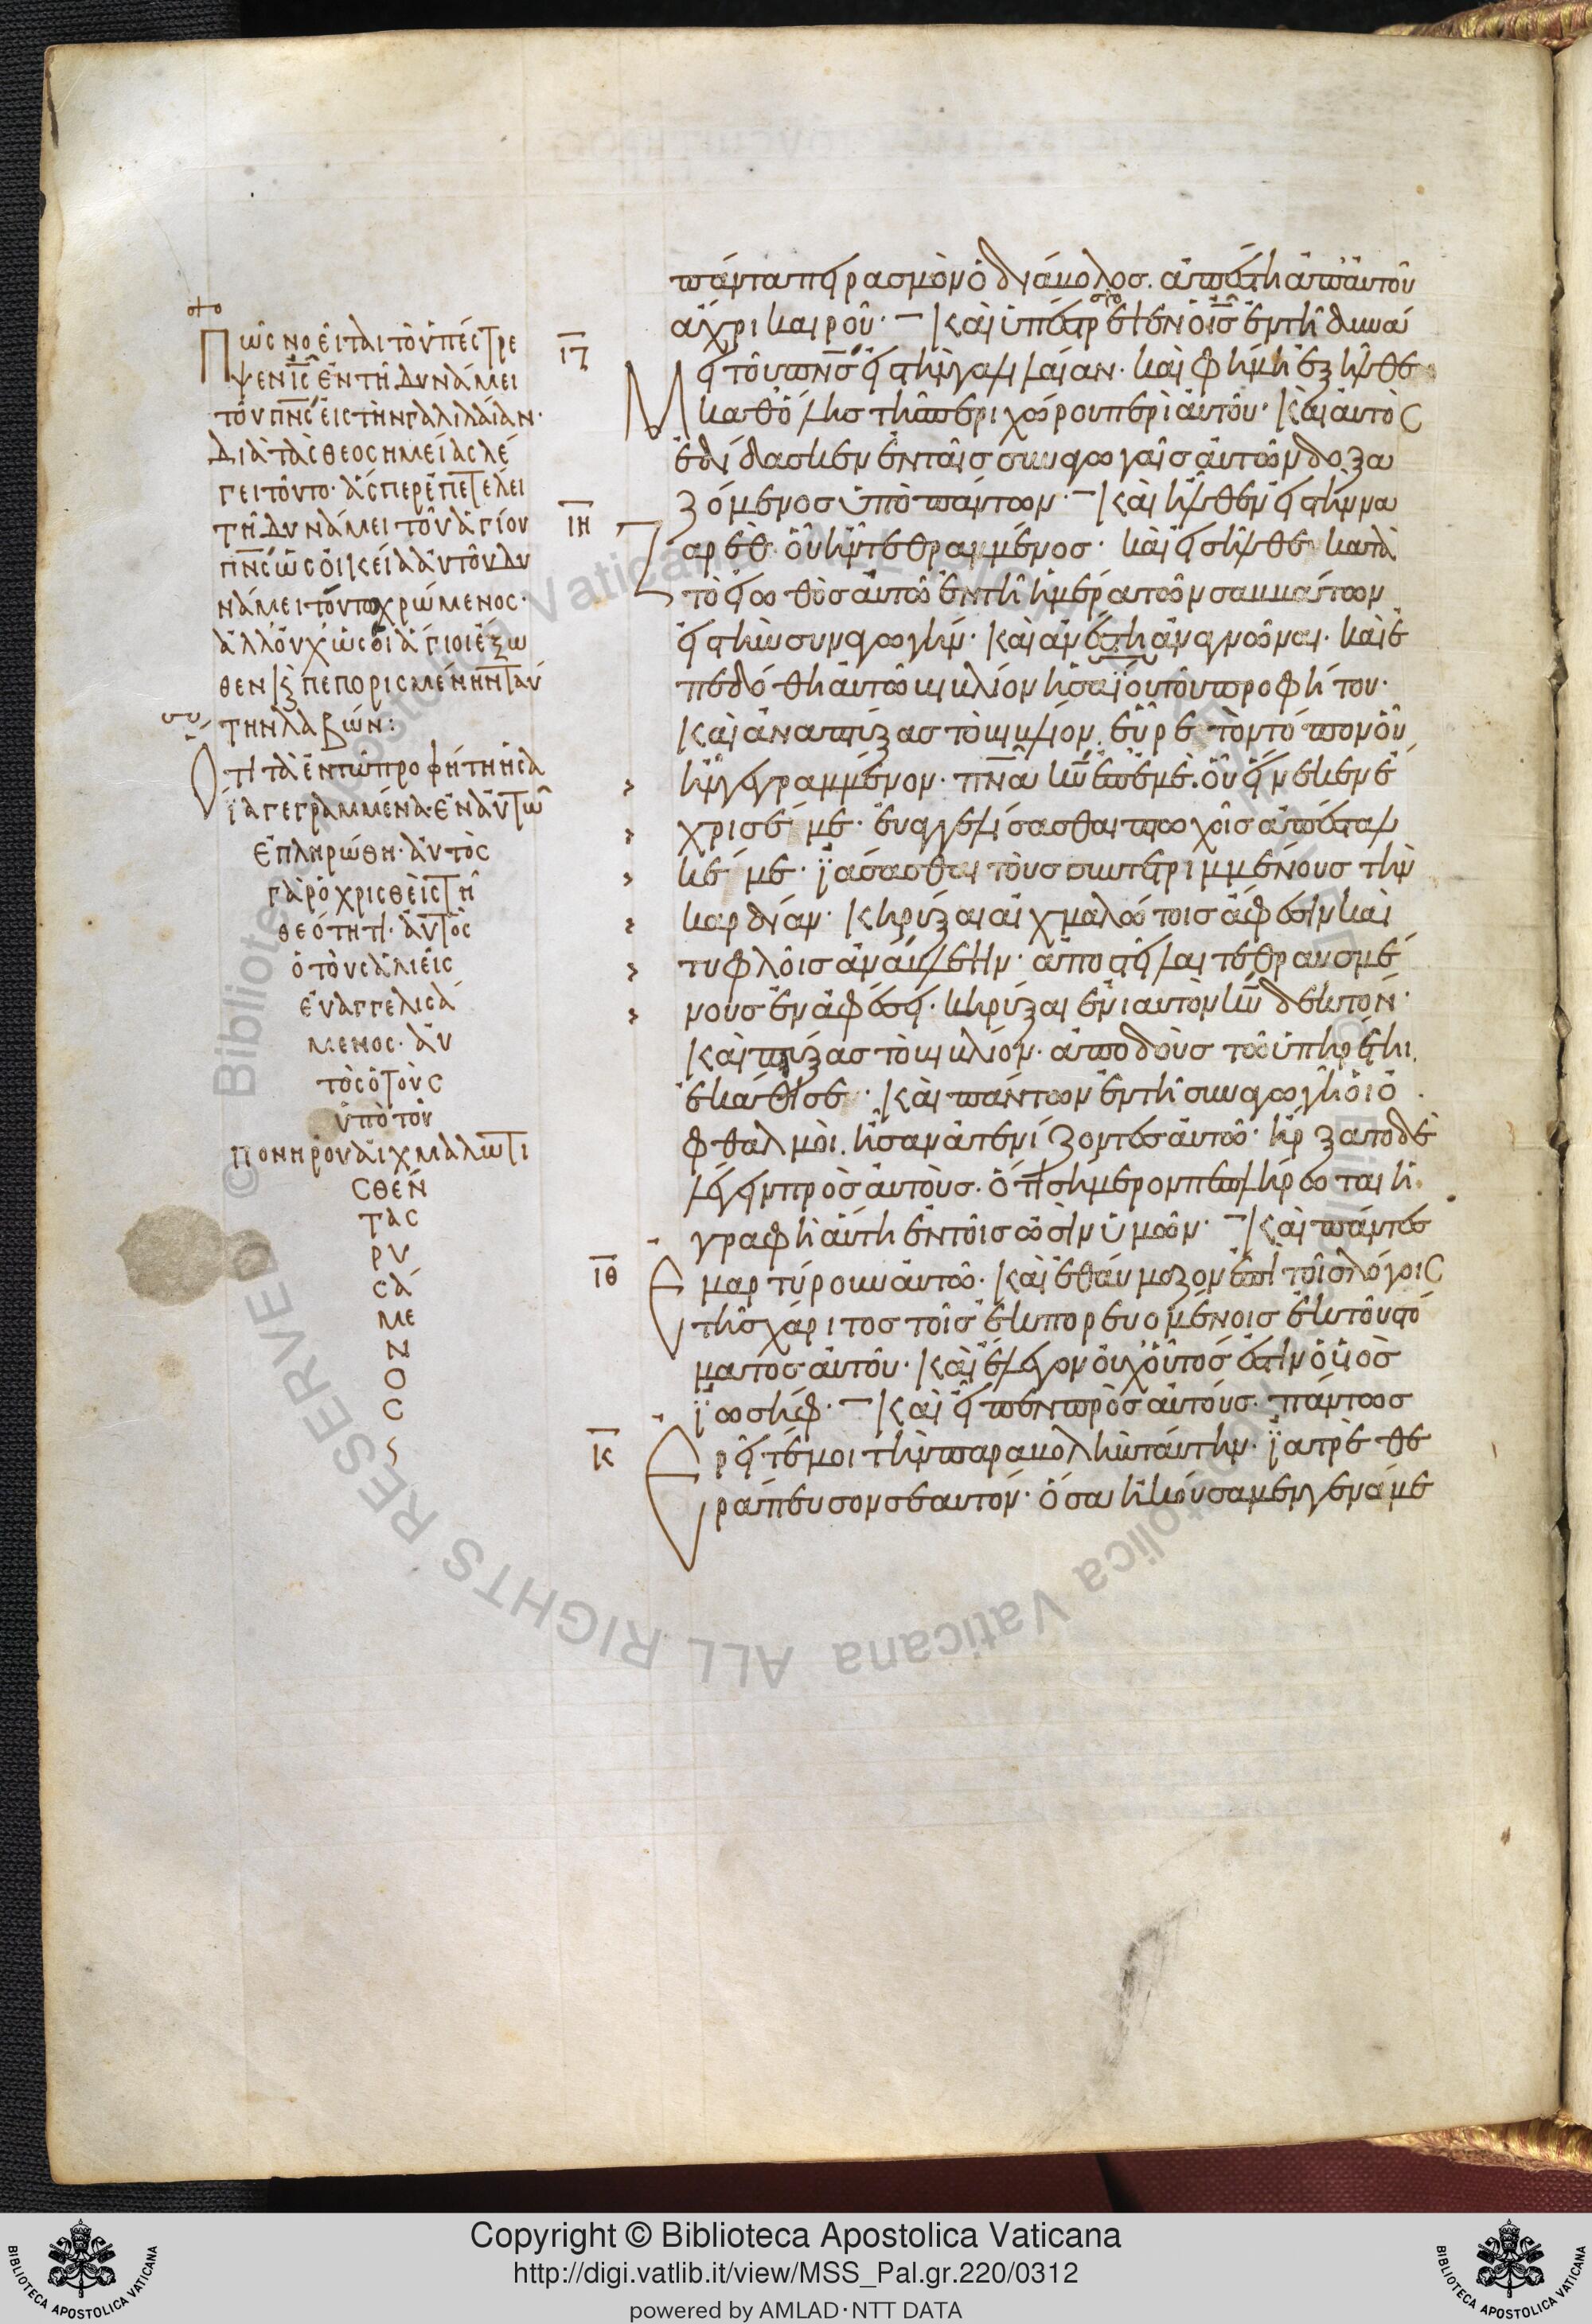 πάντα πειρασμὸν ὁ διάβολος. ἀπέστη ἀπ' αὐτοῦ
ἄχρι καιροῦ· Καὶ ὑπέστρεψεν ὁ ι̅ς̅ ἐν τῆ δυνά
μει τοῦ π̅ν̅ς̅ εἰς τὴν γαλιλαίαν· καὶ φήμη ἐξῆλθε
καθ' ὅλης τῆς περιχώρου περὶ αὐτοῦ· Καὶ αὐτὸς
ἐδίδασκεν ἐν ταῖς συναγωγαῖς αὐτῶν δοξα
ζόμενος ὑπὸ πάντων· Καὶ ἦλθεν εἰς τὴν να
ζαρέθ οὗ ἦν τεθραμμένος· καὶ εἰσῆλθε κατὰ
τὸ εἰωθὸς αὐτῶ ἐν τῆ ἡμέρα τῶν σαββάτων
εἰς τὴν συναγωγήν· Καὶ ἀνέστη ἀναγνῶναι· καὶ ἐ
πεδόθη αὐτῶ βιβλίον ἠσαΐου τοῦ προφήτου·
Καὶ ἀναπτύξας τὸ βιβλίον. εὗρε τὸν τόπον οὗ
ἦν γεγραμμένον· π̅ν̅α̅ κ̅υ̅ ἐπ' ἐμέ. οὗ εἵνεκεν ἔ
χρισέ με· εὐαγγελίσασθαι πτωχοῖς ἀπέσταλ
κέ με· ἰάσασθαι τοὺς συντετριμμένους τὴν
καρδίαν· Κηρύξαι αἰχμαλώτοις ἄφεσιν καὶ
τυφλοῖς ἀνάβλεψιν· ἀποστεῖλαι τεθραυσμέ
νους ἐν ἀφέσει· κηρύξαι ἐνιαυτὸν κ̅υ̅ δεκτόν·
Καὶ πτύξας τὸ βιβλίον· ἀποδοὺς τῶ ὑπηρέτη
ἐκάθισε· Καὶ πάντων ἐν τῆ συναγωγῆ οἱ ὀ
φθαλμοὶ. ἦσαν ἀτενίζοντες αὐτῶ· ἤρξατο δὲ
λέγειν πρὸς αὐτοὺς· ὅτι σήμερον πεπλήρωται ἡ
γραφὴ αὕτη ἐν τοῖς ὠσὶν ὑμῶν· Καὶ πάντες
ἐμαρτύρουν αὐτῶ· Καὶ ἐθαύμαζον ἐπὶ τοῖς λόγοις
τῆς χάριτος τοῖς ἐκπορευομένοις ἐκ τοῦ στό
ματος αὐτοῦ· Καὶ ἔλεγον οὐχ οὗτός ἐστιν ὁ υἱὸς
ἰωσήφ· Καὶ εἶπεν πρὸς αὐτούς. πάντως
ἐρεῖτέ μοι τὴν παραβολὴν ταύτην· ἰατρὲ θε
ράπευσον σεαυτόν· ὅσα ἠκούσαμεν γενάμε
Πῶς νοεῖται τὸ ὑπέστρε
ψεν ι̅ς̅ ἐν τῆ δυνάμει
τοῦ π̅ν̅ς̅ εἰς τὴν γαλιλαίαν·
Διὰ τὰς θεοσημείας λέ
γει τοῦτο· ἅσπερ ἐπετέλει
τῆ δυνάμει τοῦ ἁγίου
π̅ν̅ς̅ ὡς οἰκεία αὐτοῦ δυ
νάμει τούτω χρώμενος·
ἀλλ' οὐχ ὡς οἱ ἅγιοι ἔξω
θεν πεπορισμένην ταύ
την λαβών:
Ὅτι τὰ ἐν τῶ προφήτη ἠσα
ΐα γεγραμμένα· ἐν αὐτῶ
ἐπληρώθη· αὐτὸς
γὰρ ὁ χρισθεὶς τῆ
θεότητι· αὐτὸς
ὁ τοὺς ἁλιεῖς
εὐαγγελισά
μενος· αὐ
τὸς ὁ τοὺς
ὑπὸ τοῦ
πονηροῦ αἰχμαλωτι
σθέν
τας
ρυ
σά
με
ν
ο
ς
ι̅ζ̅
ι̅η̅
ι̅θ̅
κ̅
Copyright © Biblioteca Apostolica Vaticana
http://digi.vatlib.it/view/MSS_Pal.gr.220/0312
powered by AMLAD·NTT DATA
BIBLIOTECA APOSTOLICA VATICANA
BIBLIOTECA APOSTOLICA VATICANA
© Biblioteca Apostolica Vaticana ALL RIGHTS RESERVED